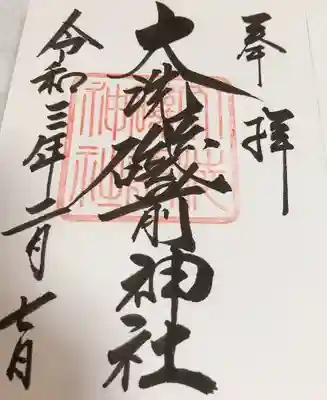 奉拝
大洗磯前神社
令和三年二月七日